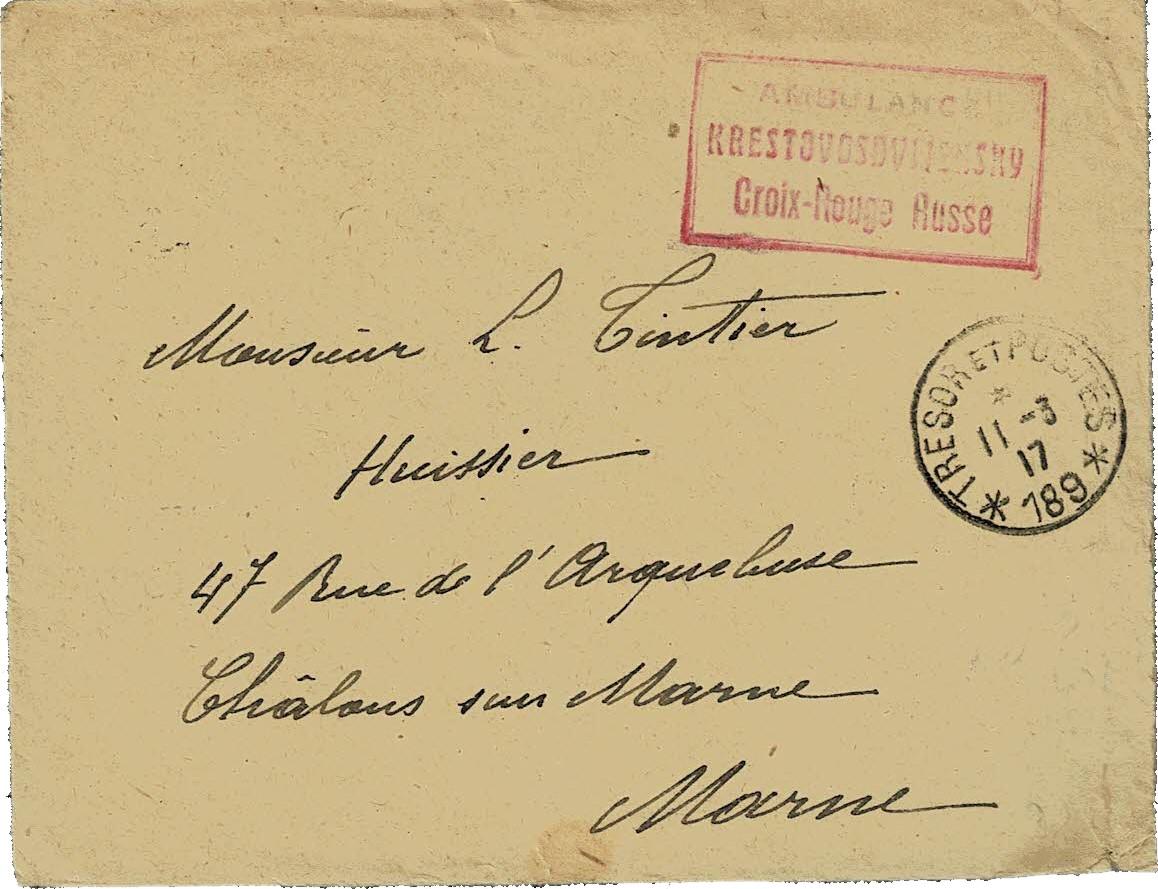 AMBULANCE
KRESTOVOSDVIJENSKY
Croix-Rouge Russe
Monsieur L. Tintier
Huissier
47 Rue de l'Arquebuse
Châlons sur Marne
Marne
TRESOR ET POSTES
* 11 -3
17
* 189 *